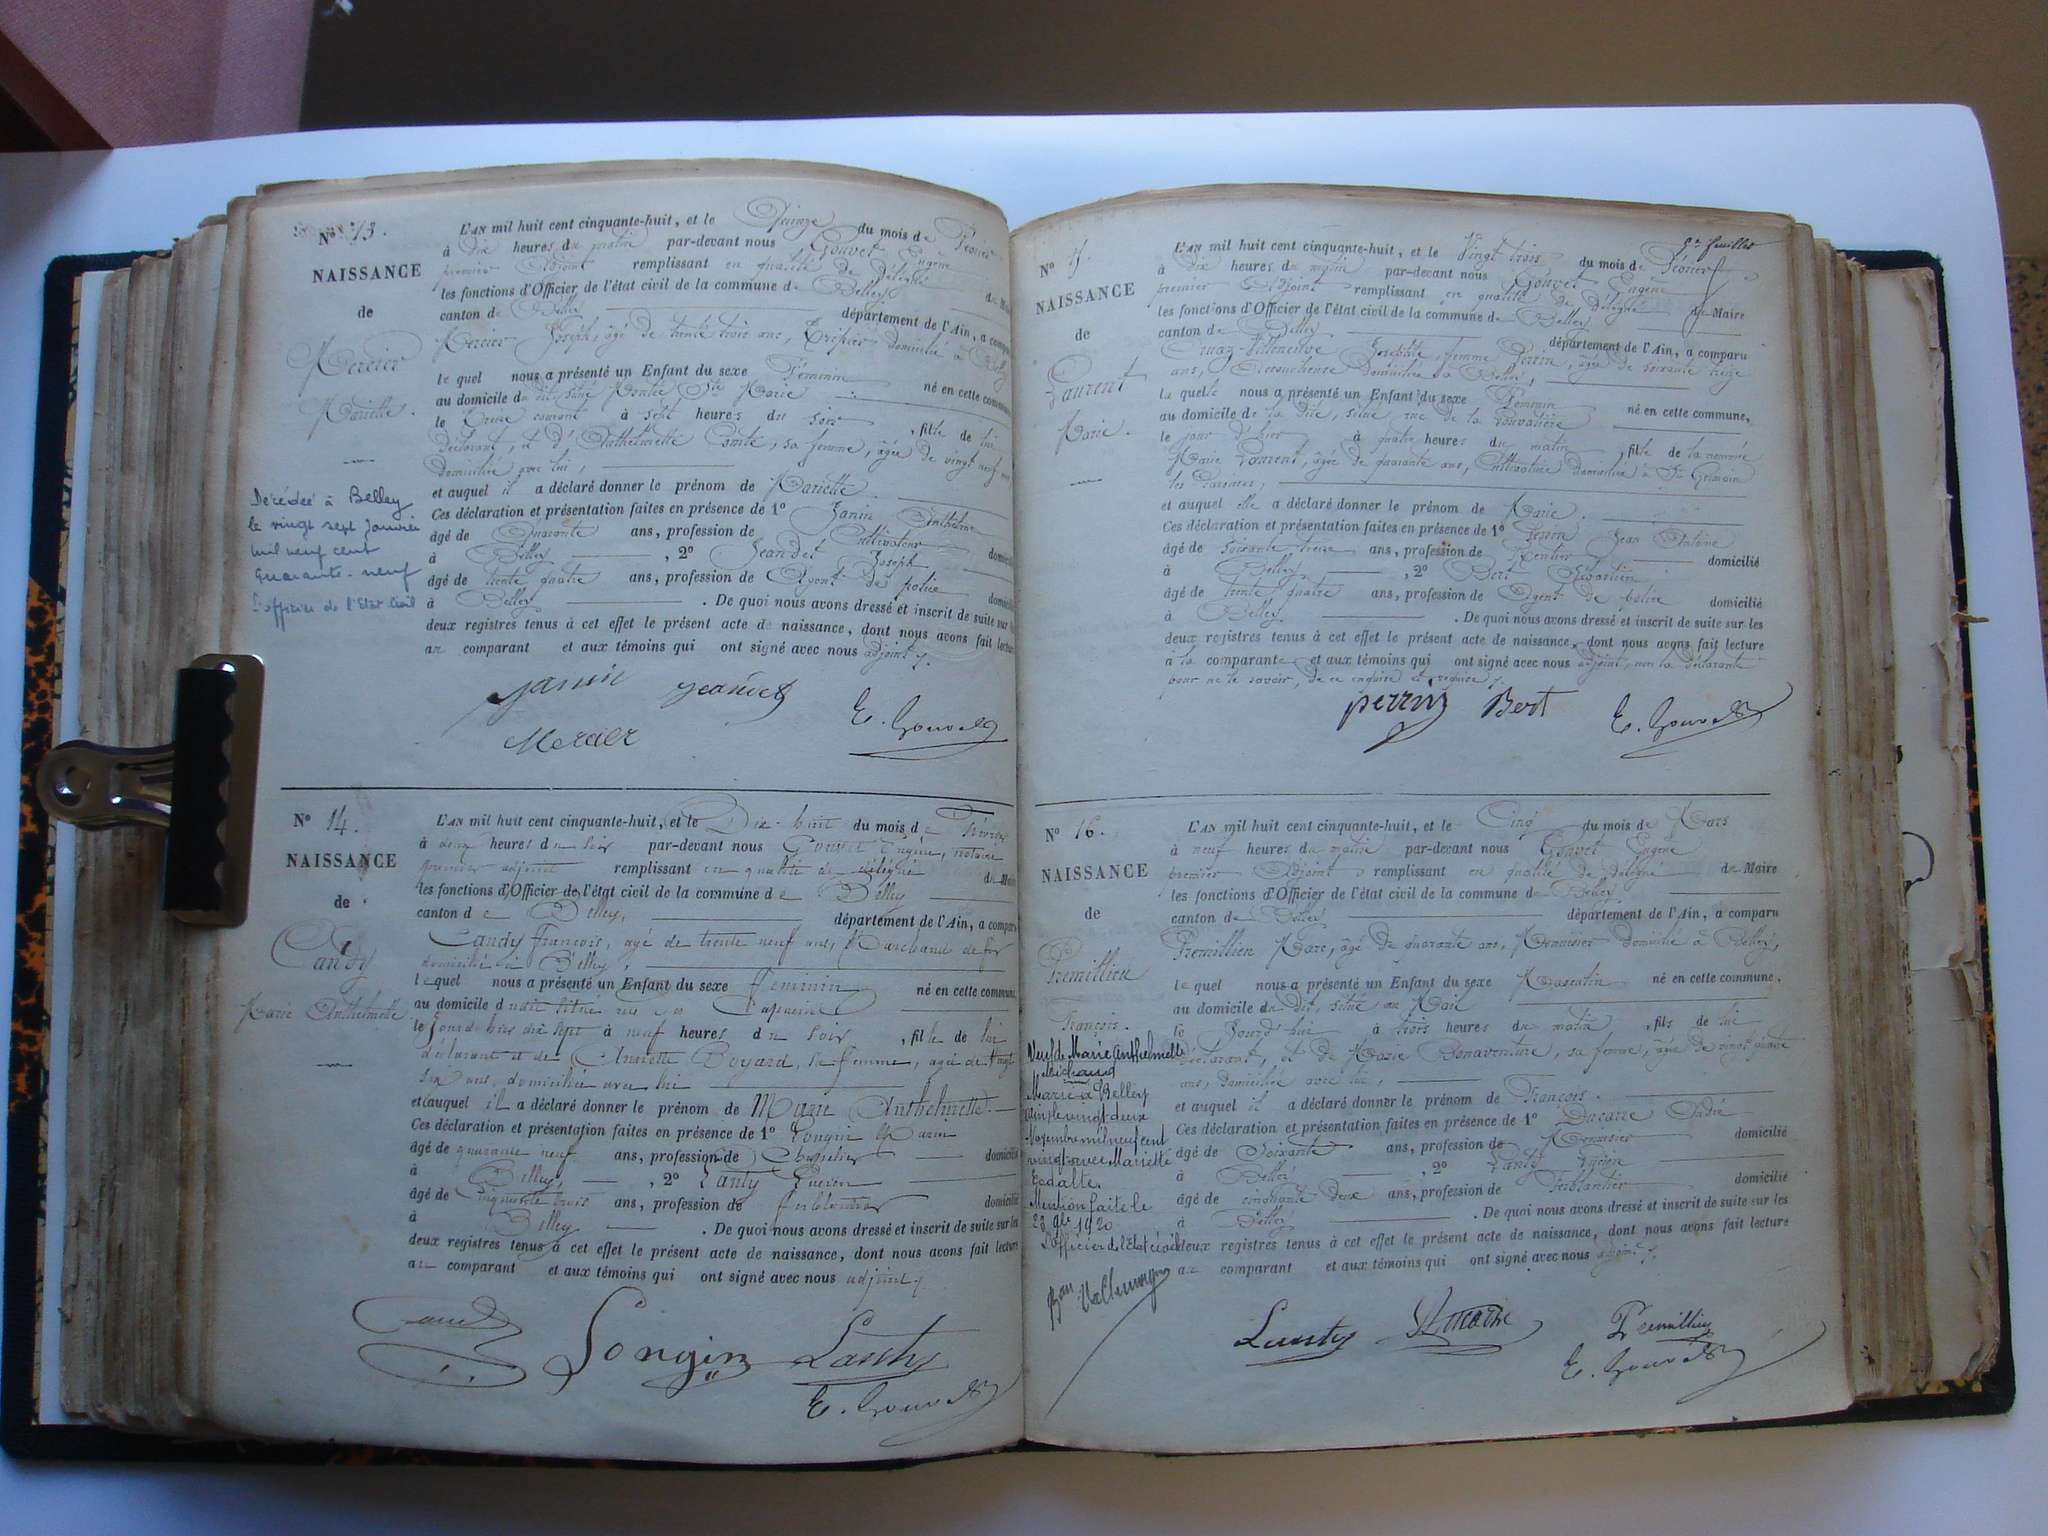 N° 13.
NAISSANCE
de
Mercier
Mariette.
Décédée à Belley
le vingt sept Janvier
mil neuf cent
quarante-neuf
L'officier de l'Etat Civil
L'AN mil huit cent cinquante-huit, et le Quinze du mois de Février
à dix heures du matin par-devant nous Gouvet Eugène
premier Adjoint remplissant en qualité de Délégué du Maire
les fonctions d'Officier de l'état civil de la commune de Belley
canton de Belley département de l'Ain, a comparu
Mercier Joseph, âgé de trente trois ans, domicilié à Belley
lequel nous a présenté un Enfant du sexe Féminin né en cette commune,
au domicile du dit, situé Montée Ste Marie
le Treize courant à sept heures du soir, fille de lui
déclarant, et d'Anthelmette Comte, sa femme, âgée de vingt neuf ans
domiciliée avec lui,
et auquel il a déclaré donner le prénom de Mariette.
Ces déclaration et présentation faites en présence de 1° Janin Anthelme
âgé de Quarante ans, profession de Cultivateur domicilié
à Belley, 2° Jeandet Joseph
âgé de trente quatre ans, profession de Agent de police domicilié
à Belley. De quoi nous avons dressé et inscrit de suite sur les
deux registres tenus à cet effet le présent acte de naissance, dont nous avons fait lecture
au comparant et aux témoins qui ont signé avec nous adjoint.
Janin Jeandet
Mercier E. Gouvet
N° 14.
NAISSANCE
de
Candy
Marie Anthelmette
L'AN mil huit cent cinquante-huit, et le Dix-huit du mois de Février
à deux heures du soir par-devant nous Gouvet Eugène, notaire
premier adjoint remplissant en qualité de délégué du Maire
les fonctions d'Officier de l'état civil de la commune de Belley
canton de Belley, département de l'Ain, a comparu
Candy François, âgé de trente neuf ans, Marchand de fer
domicilié à Belley,
lequel nous a présenté un Enfant du sexe féminin né en cette commune,
au domicile du dit situé rue des Capucins
le jour d'hier dix sept à neuf heures du soir, fille de lui
déclarant et de Anriette Boyard, sa femme, âgée de vingt
six ans, domiciliée avec lui
et auquel il a déclaré donner le prénom de Marie Anthelmette.
Ces déclaration et présentation faites en présence de 1° Longin Marin
âgé de quarante neuf ans, profession de Chapelier domicilié
à Belley, 2° Lanty Lucien
âgé de Cinquante trois ans, profession de ferblantier domicilié
à Belley. De quoi nous avons dressé et inscrit de suite sur les
deux registres tenus à cet effet le présent acte de naissance, dont nous avons fait lecture
au comparant et aux témoins qui ont signé avec nous adjoint.
Candy Longin Lanty
E. Gouvet
5e feuillet
N° 15.
NAISSANCE
de
Laurent
Marie.
L'AN mil huit cent cinquante-huit, et le Vingt trois du mois de Février
à dix heures du matin par-devant nous Gouvet Eugène
premier Adjoint remplissant en qualité de Délégué du Maire
les fonctions d'Officier de l'état civil de la commune de Belley
canton de Belley département de l'Ain, a comparu
Cruaz-Villeneuve Josephte, femme Perrin, âgée de soixante treize
ans, Accoucheuse domiciliée à Belley,
laquelle nous a présenté un Enfant du sexe Féminin né en cette commune,
au domicile de la dite, situé rue de la
le jour d'hier, à quatre heures du matin, fille de la nommée
Marie Laurent, âgée de quarante ans, Cultivatrice domiciliée à St Germain
les Paroisses,
et auquel elle a déclaré donner le prénom de Marie.
Ces déclaration et présentation faites en présence de 1° Perrin Jean Antoine
âgé de soixante treize ans, profession de Rentier domicilié
à Belley, 2° Bert Sébastien
âgé de trente quatre ans, profession de Agent de police domicilié
à Belley. De quoi nous avons dressé et inscrit de suite sur les
deux registres tenus à cet effet le présent acte de naissance, dont nous avons fait lecture
à la comparante et aux témoins qui ont signé avec nous adjoint, non la déclarante
pour ne le savoir, de ce enquise et requise.
perrin Bert E. Gouvet
N° 16.
NAISSANCE
de
Premillieu
François.
Veuf de Marie Anthelmette
Michaud
Marié à Belley
Ain le vingt-deux
Novembre mil neuf cent
vingt avec Mariette
Mention faite le
23 9bre 1920
L'Officier de l'Etat civil
L'AN mil huit cent cinquante-huit, et le Cinq du mois de Mars
à neuf heures du matin par-devant nous Gouvet Eugène
premier Adjoint remplissant en qualité de délégué du Maire
les fonctions d'Officier de l'état civil de la commune de Belley
canton de Belley département de l'Ain, a comparu
Premillieu Marc, âgé de quarante ans, Menuisier domicilié à Belley,
lequel nous a présenté un Enfant du sexe Masculin né en cette commune,
au domicile du dit, situé au Mail
le Jourd'hui à trois heures du matin, fils de lui
déclarant, et de Marie Bonaventure, sa femme, âgée de vingt quatre
ans, domiciliée avec lui,
et auquel il a déclaré donner le prénom de François.
Ces déclaration et présentation faites en présence de 1° Ducarre André
âgé de Soixante ans, profession de Menuisier domicilié
à Belley, 2° Lanty Lucien
âgé de cinquante deux ans, profession de Ferblantier domicilié
à Belley. De quoi nous avons dressé et inscrit de suite sur les
deux registres tenus à cet effet le présent acte de naissance, dont nous avons fait lecture
au comparant et aux témoins qui ont signé avec nous adjoint.
Lanty Ducarre Premillieu
E. Gouvet